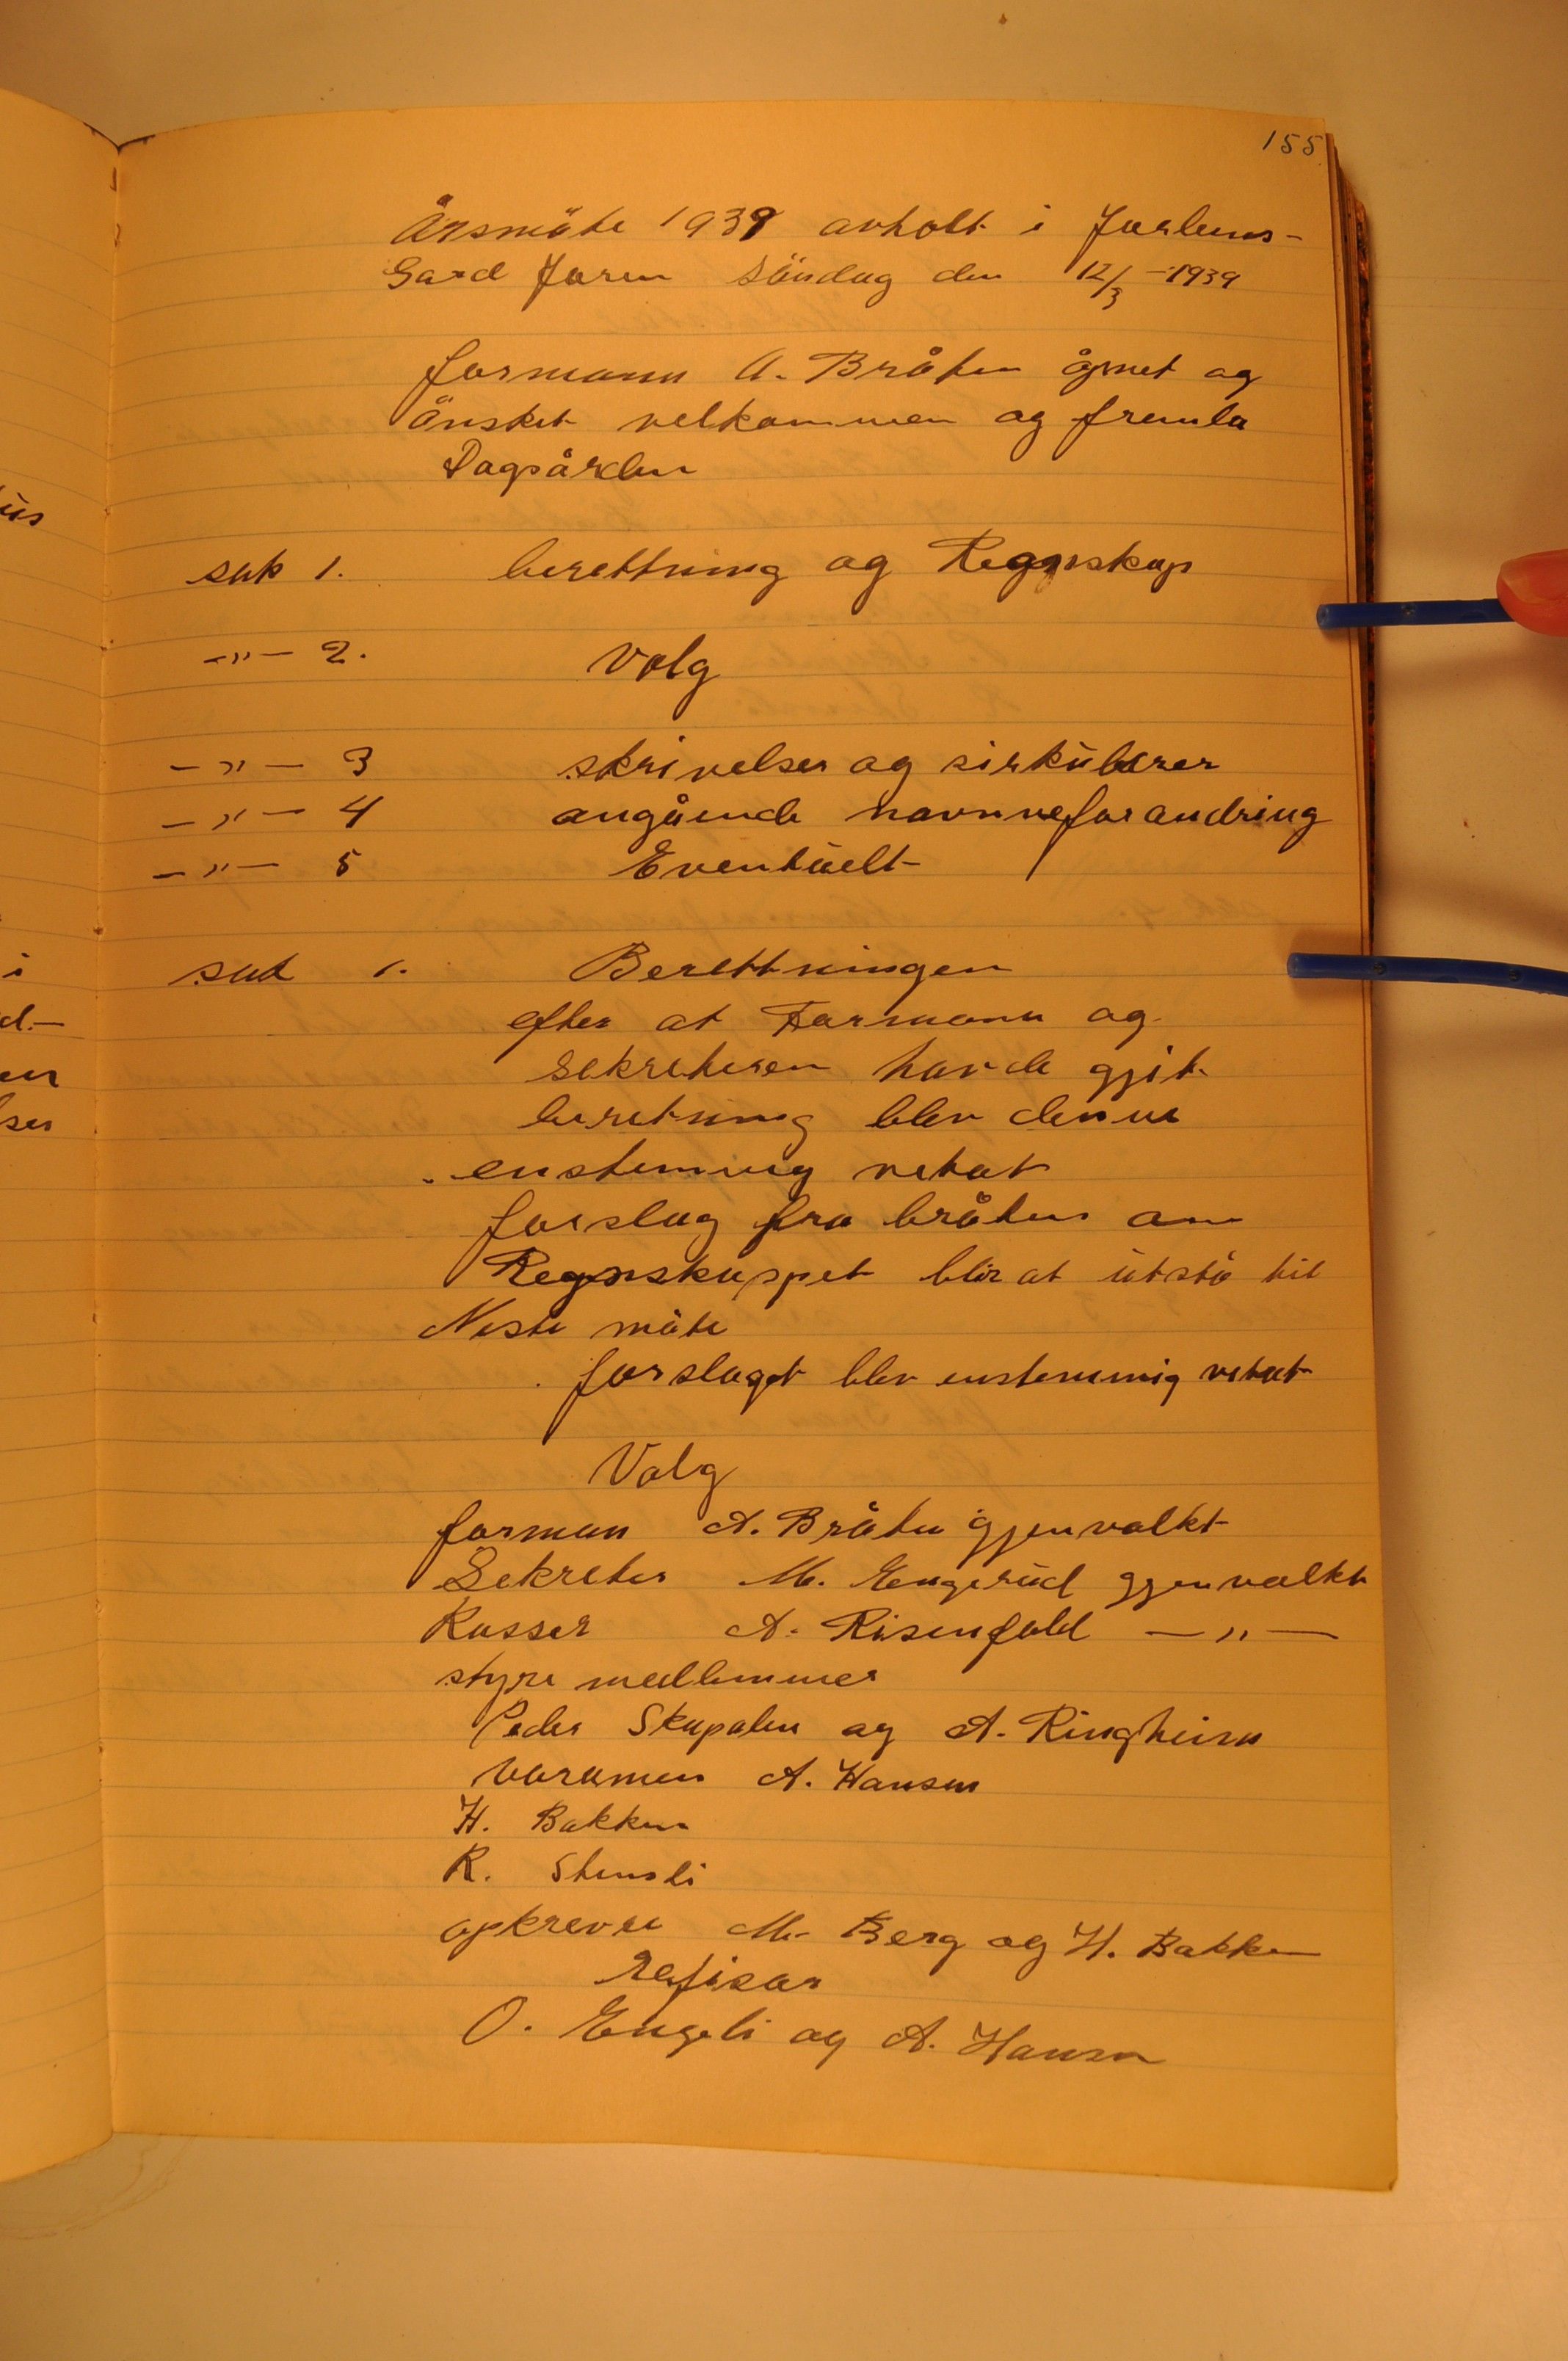 155
Årsmöte 1939 avholt i Forbens-
Gard foren Söndag den 12/3 - 1939
formann A. Bråten åpnet og
önsket velkommen og fremla
Dagsården
sak 1. berettning og Regnskap
-"- 2. Valg
-"- 3 skrivelser og sirkülærer
-"- 4 angående navnneforandring
-"- 5 Eventüelt
sak 1. Berettningen
efter at Formann og
Sekreteren havde gjit
beretning blev denne
enstemmig vetat
forslag fra bråten om
Regnskapet blir at ütstå til
Neste möte
forslaget blev enstemmig vetat
Valg
forman A. Bråten gjenvalkt
Sekreter M. Engerüd gjenvalkt
Kasser A. Risenfald -"-
styre medlemmer
Peder Skapalen og A. Ringheim
varamen A. Hansen
H. Bakken
R. Stensli
opkrever M. Berg og H. Bakken
refisor
O. Engeli og A. Hansen
üs
i
d.-
en
ser